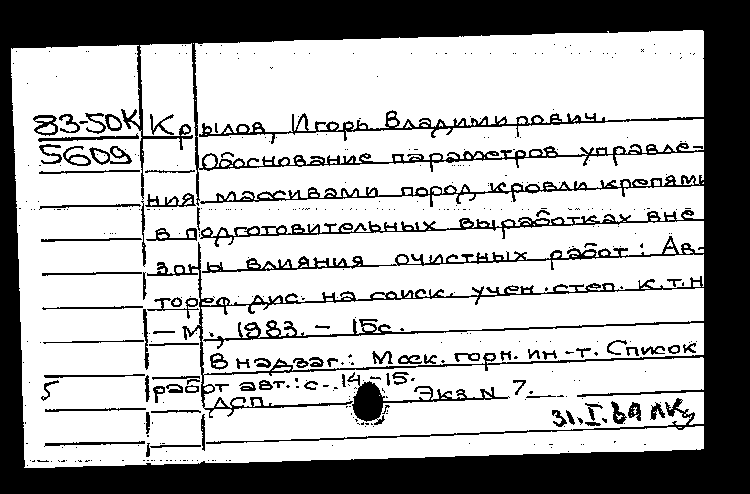 83-50К Крылов, Игорь Владимирович.
5609 Обоснование параметров управле-
ния массивами пород кровли крепями
в подготовительных выработках вне
зоны влияния очистных работ: Ав-
тореф. дис. на соиск. учен. степ. к.т.н
— М., 1983. — 15с.
В надзаг.: Моск. горн. ин-т. Список
5 работ авт.: с. 14-15.
ДСП. Экз N 7.
31.I.89